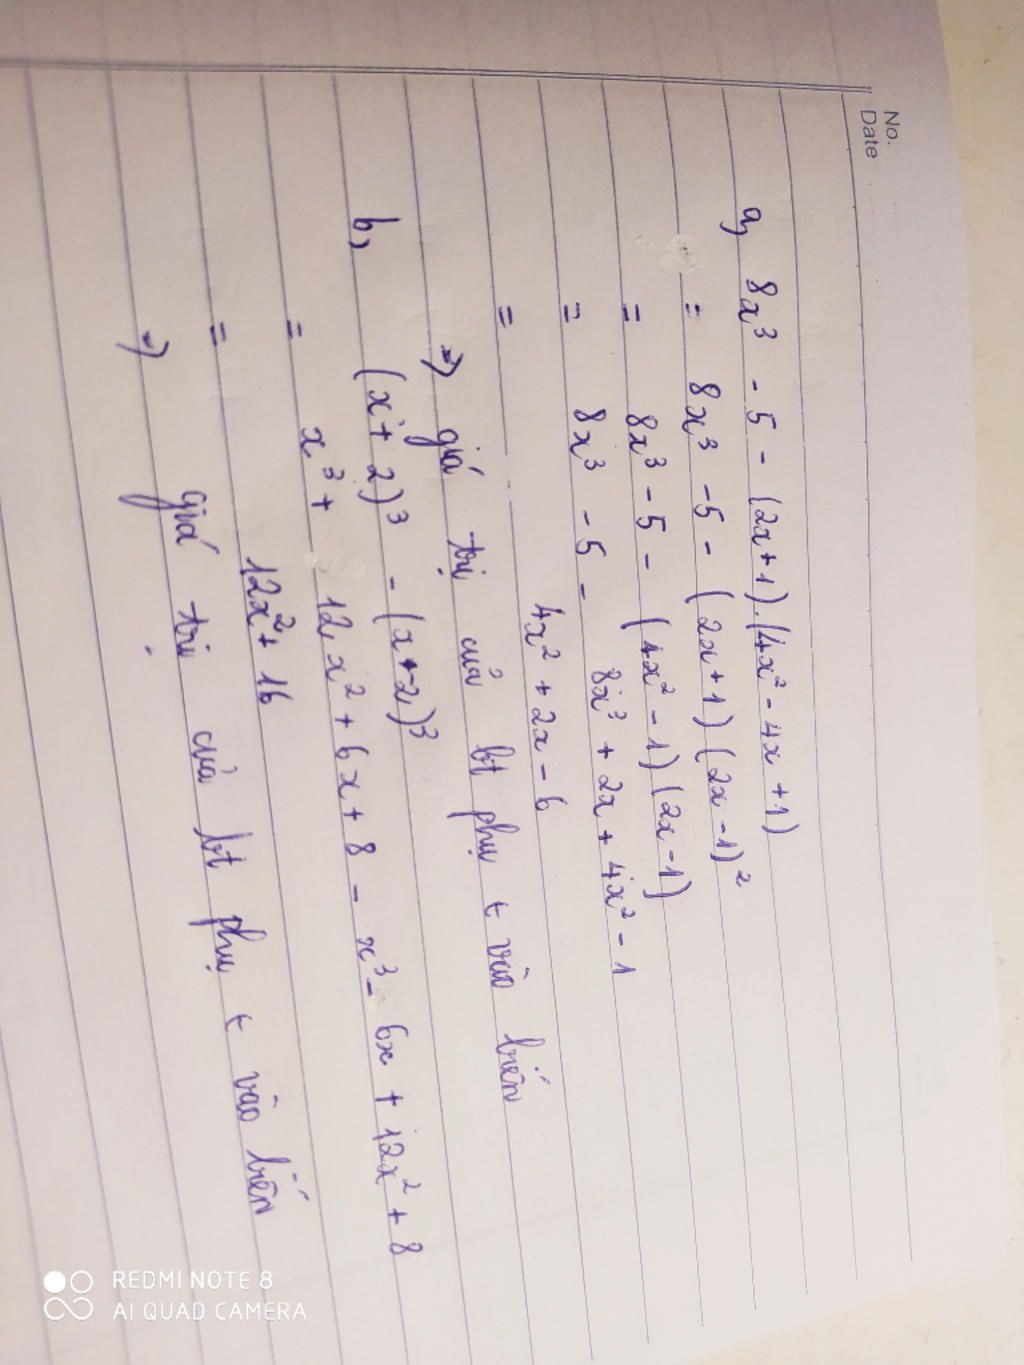 No.
Date
a, 8x³ - 5 - (2x+1).(4x² - 4x + 1)
= 8x³ - 5 - (2x+1)(2x-1)²
= 8x³ - 5 - (4x² - 1)(2x-1)
= 8x³ - 5 - 8x³ + 2x + 4x² - 1
= 4x² + 2x - 6
=) giá trị của bt phụ t vào biến
b, (x+2)³ - (x-2)³
= x³ + 12x² + 6x + 8 - x³ - 6x + 12x² + 8
= 12x² + 16
=) giá trị của bt phụ t vào biến
REDMI NOTE 8
AI QUAD CAMERA